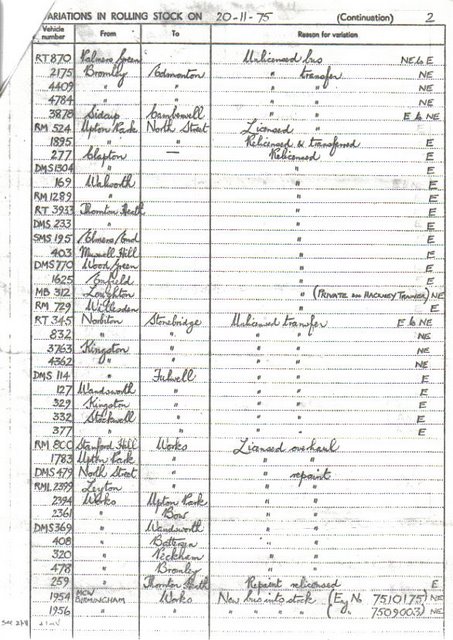 VARIATIONS IN ROLLING STOCK ON 20-11-75 (Continuation) 2
Vehicle number From To Reason for variation
RT 870 Palmers Green Unlicensed bus NE to E
2175 Bromley Edmonton " transfer NE
4409 " " " " NE
4784 " " " " NE
3878 Sidcup Camberwell " " E to NE
RM 524 Upton Park North Street Licensed " E
1895 " " Relicensed & transferred E
277 Clapton — Relicensed E
DMS 1304 " " E
169 Walworth " E
RM 1289 " " E
RT 3933 Thornton Heath " E
DMS 233 " " E
SMS 195 Elmers End " E
403 Muswell Hill " E
DMS 770 Wood Green " E
1625 Enfield " E
MB 312 Loughton " (PRIVATE on HACKNEY TRAINER) NE
RM 729 Willesden " E
RT 345 Norbiton Stonebridge Unlicensed transfer E to NE
832 " " " " NE
3763 Kingston " " " NE
4362 " " " " NE
DMS 114 " Fulwell " " E
127 Wandsworth " " " E
329 Kingston " " " E
332 Stockwell " " " E
377 " " " " E
RM 800 Stamford Hill Works Licensed overhaul
1783 Upton Park " " "
DMS 479 North Street " " repaint
RML 2379 Leyton " " "
2394 Works Upton Park " "
2361 " Bow " "
DMS 369 " Wandsworth " "
408 " Battersea " "
320 " Peckham " "
478 " Bromley " "
259 " Thornton Heath Repaint relicensed E
1954 MCW BIRMINGHAM Works New bus into stock (Eng No 7510175) NE
1956 " " " ( " 7509003) NE